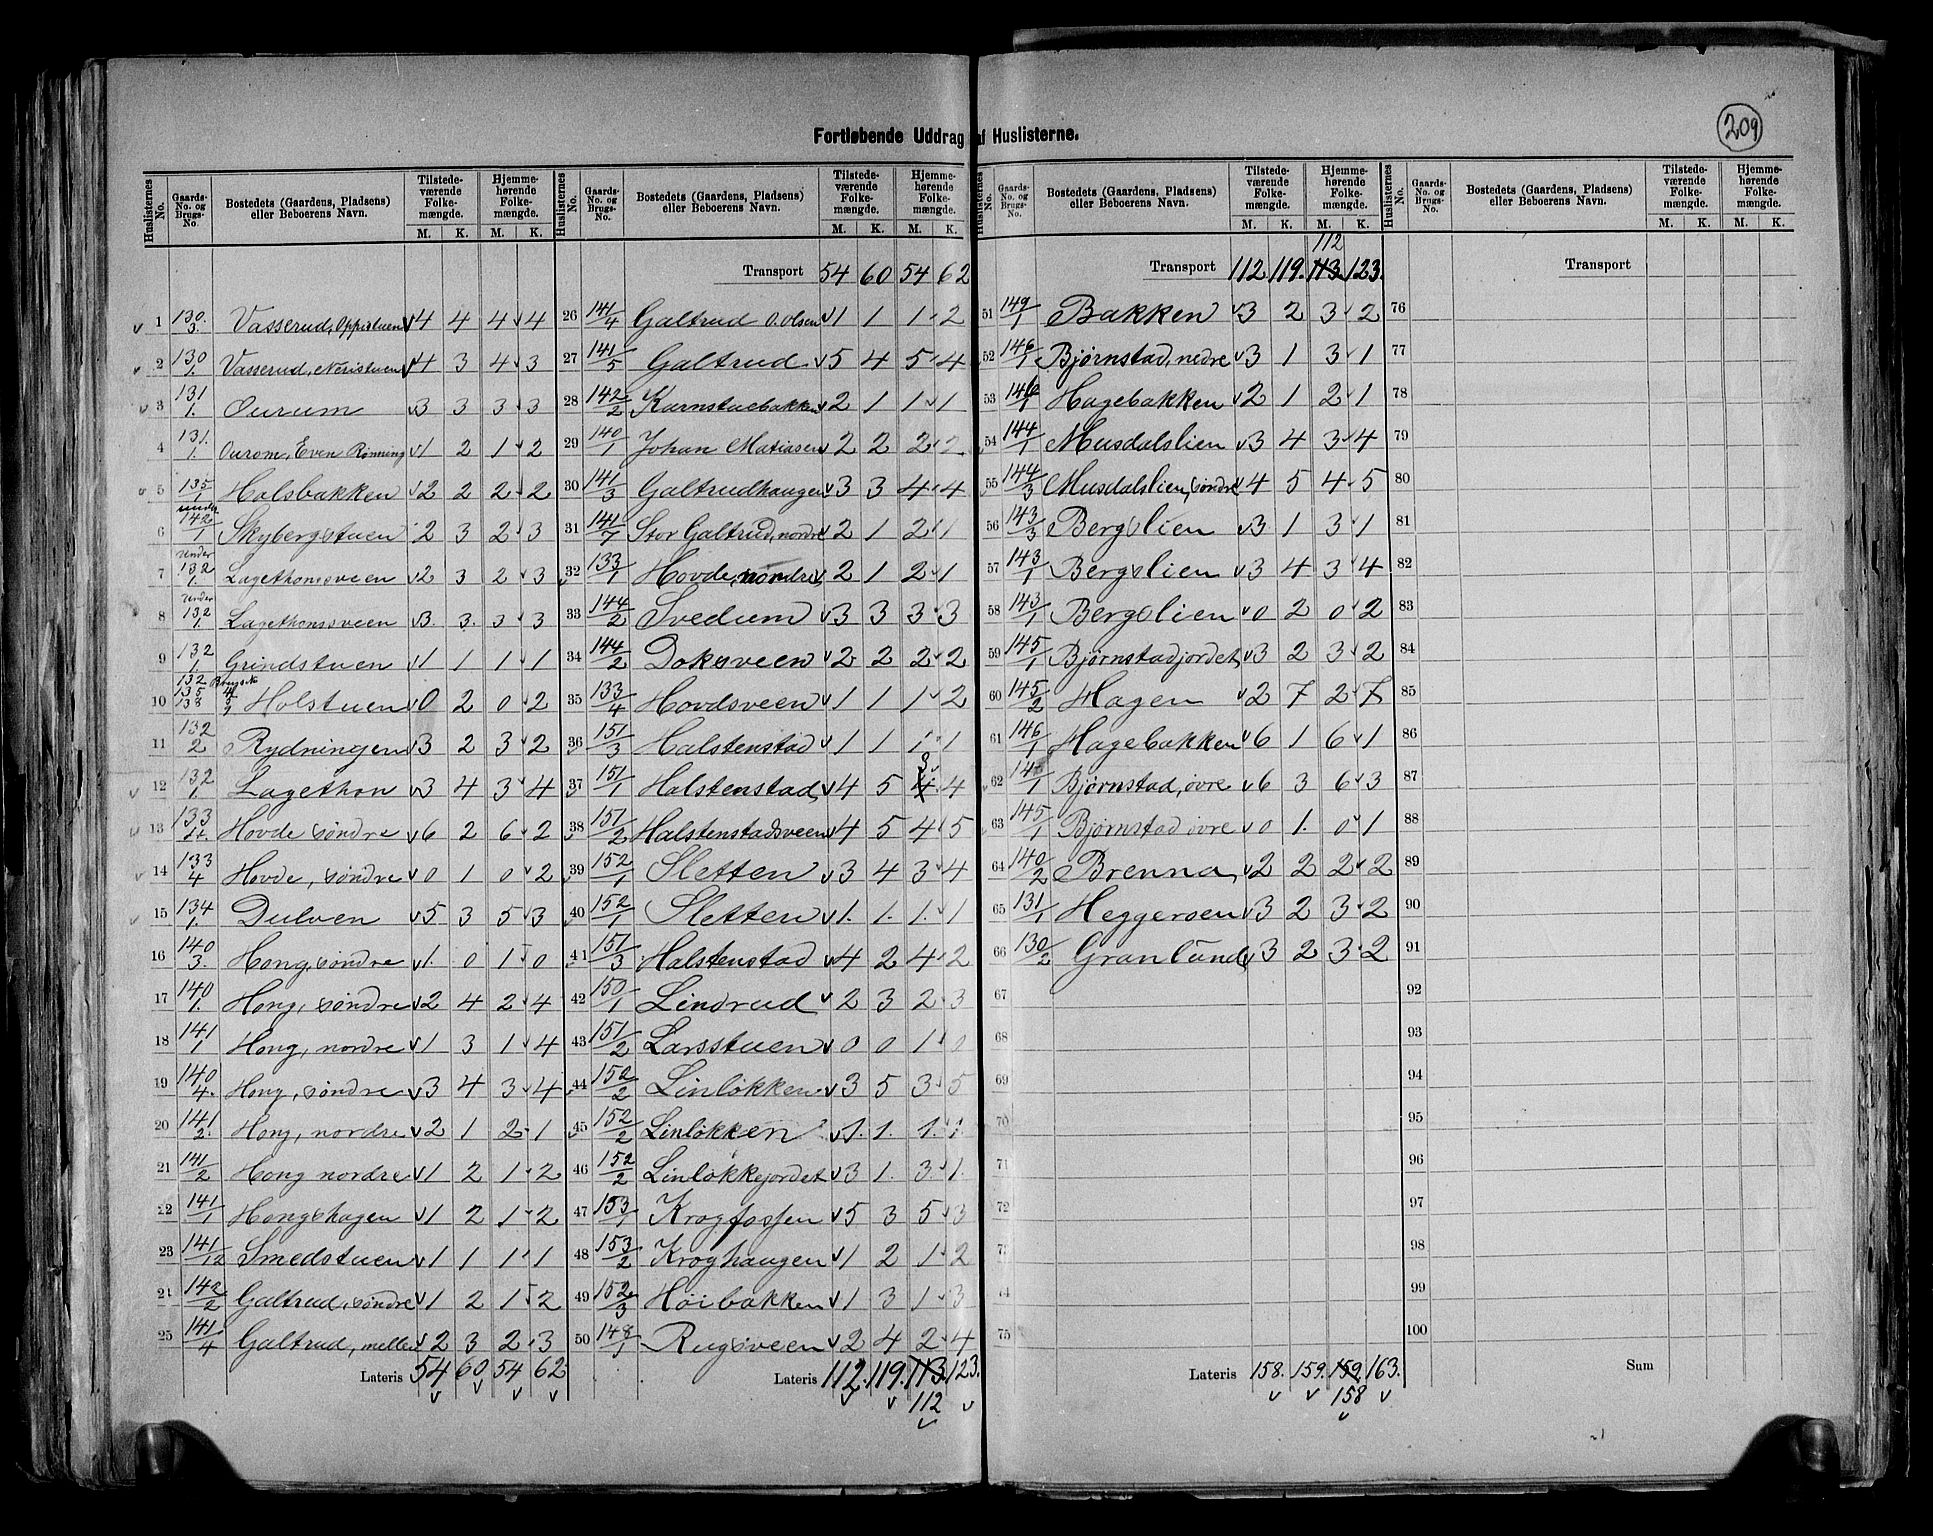 209
Fortløbende Uddrag af Huslisterne.
Huslisternes No. Gaards-No. og Brugs-No. Bostedets (Gaardens, Pladsens) eller Beboerens Navn. Tilstedeværende Folkemængde. M. K. Hjemmehørende Folkemængde. M. K.
1 130/3. Vasserud, Oppistuen 4 4 4 4
2 130/1. Vasserud, Nesistuen 4 3 4 3
3 131/1. Ourum 3 3 3 3
4 131./1. Ourom, Even Rønning 1 2 1 2
5 135/1 Holsbakken 2 2 2 2
6 under 142/1 Skybergstuen 2 3 2 3
7 under 132/1. Lagethonsveen 2 3 2 3
8 under 132/1. Lagethonsveen 3. 3. 3 3
9 132/1 Grindstuen 1 1 1 1
10 132 135 138 Holstuen 0 2 0 2
11 132/2 Rydningen 3 2 3 2
12 132/1 Lagethon 3 4 3 4
13 133 Hovde søndre 6 2 6 2
14 133/4 Hovde, søndre 0 1 0 2
15 134/1. Dulven 5 3 5 3
16 140/3. Hong, søndre 1. 0 1 0
17 140/1. Hong, søndre 2 4 2 4
18 141/1 Hong, nordre 1 3 1 4
19 140/4. Hong, søndre 3 4 3 4
20 141/2. Hong, nordre 2 1 2 1
21 141/2 Hong nordre 1 2 1 2
22 141/1 Hongshagen 1 2 1 2
23 141/12 Smedstuen 1 1 1 1
24 142/2 Galtrud, søndre 1 2 1 2
25 141/4 Galtrud, mellem 2 3 2 3
Lateris 54 60 54 62
Huslisternes No. Gaards-No. og Brugs-No. Bostedets (Gaardens, Pladsens) eller Beboerens Navn. Tilstedeværende Folkemængde. M. K. Hjemmehørende Folkemængde. M. K.
Transport 54 60 54 62
26 141/4 Galtrud O. Olsen 1 1 1 2
27 141/5 Galtrud 5 4 5 4
28 142/2 Karnstuebakken 2 1 1 1
29 140/1 Johan Matiasen 2 2 2 2
30 141/3 Galtrudhaugen 3 3 4 4
31 141/7 Stor Galtrud, nordre 2 1 2 1
32 133/1 Hovde, nordre 2 1 2 1
33 144/2 Svedum 3 3 3 3
34 144/2 Doksveen 2 2 2 2
35 133/4 Hovdsveen 1 1 1 2
36 151/3 Halstenstad 1 1 1 1
37 151/1 Halstenstad, 4 5 4 3 4
38 151/2 Halstenstadsveen 4 5 4 5
39 152/1 Sletten 3 4 3 4
40 152/1 Sletten 1. 1. 1. 1
41 151/3 Halstenstad 4 2 4 2
42 150/1 Lindrud 2 3 2 3
43 151/2 Larsstuen 0 0 1 0
44 152/2 Linløkken 3 5 3 5
45 152/2 Linløkken 1. 1. 1. 1.
46 152/2 Linløkkejordet 3 1. 3. 1.
47 153/1 Krogfossen 5 3 5 3
48 153/2 Kroghaugen 1 2 1 2
49 152/3 Høibakken 1 3 1 3
50 148/1 Rugsveen 2 4 2 4
Lateris 112. 119. 113. 123.
112
Huslisternes No. Gaards-No. og Brugs-No. Bostedets (Gaardens, Pladsens) eller Beboerens Navn. Tilstedeværende Folkemængde. M. K. Hjemmehørende Folkemængde. M. K.
112
Transport 112 119. 113. 123.
51 149/1 Bakken 3 2 3 2
52 146/1 Bjørnstad, nedre 3 1 3 1
53 146/1 Hagebakken 2 1 2 1
54 144/1 Musdalslien 3 4 3 4
55 144/3 Musdalslien, søndre 4 5 4 5
56 143/3 Bergslien 3 1 3 1
57 143/1 Bergslien 3 4 3 4
58 143/1 Bergslien 0 2 0 2
59 145/1 Bjørnstadjordet 3 2 3 2
60 145/2 Hagen 2 7 2 7
61 146/1 Hagebakken 6 1 6 1
62 Bjørnstad, øvre 6 3 6 3
63 145/1 Bjørnstad øvre 0 1. 0 1
64 140/2 Brenna, 2 2 2 2
65 131/1 Heggersen 3 2 3 2
66 130/2 Granlund 3 2 3 2
67
68
69
70
71
72
73
74
75
Lateris 158. 159. 159. 163.
158
Huslisternes No. Gaards-No. og Brugs-No. Bostedets (Gaardens, Pladsens) eller Beboerens Navn. Tilstedeværende Folkemængde. M. K. Hjemmehørende Folkemængde. M. K.
Transport
76
77
78
79
80
81
82
83
84
85
86
87
88
89
90
91
92
93
94
95
96
97
98
99
100
Sum